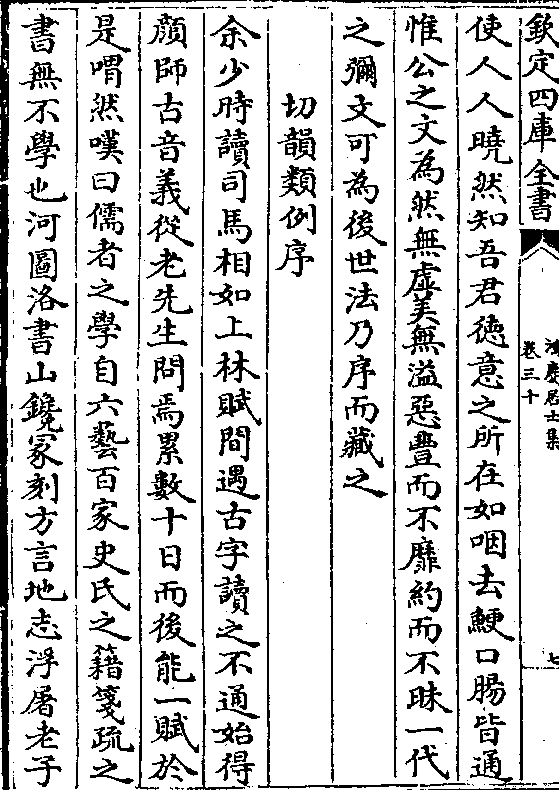 欽定四庫全書
鴻慶居士集
卷三十
七
使人人曉然知吾君德意之所在如咽去鯁口腸皆通
惟公之文為然無虛美無溢惡豊而不靡約而不昧一代
之彌文可為後世法乃序而藏之
切韻類例序
余少時讀司馬相如上林賦間遇古字讀之不通始得
顔師古音義從老先生問焉累數十日而後能一賦於
是喟然嘆曰儒者之學自六藝百家史氏之籍箋疏之
書無不學也河圖洛書山鑱冢刻方言地志浮屠老子